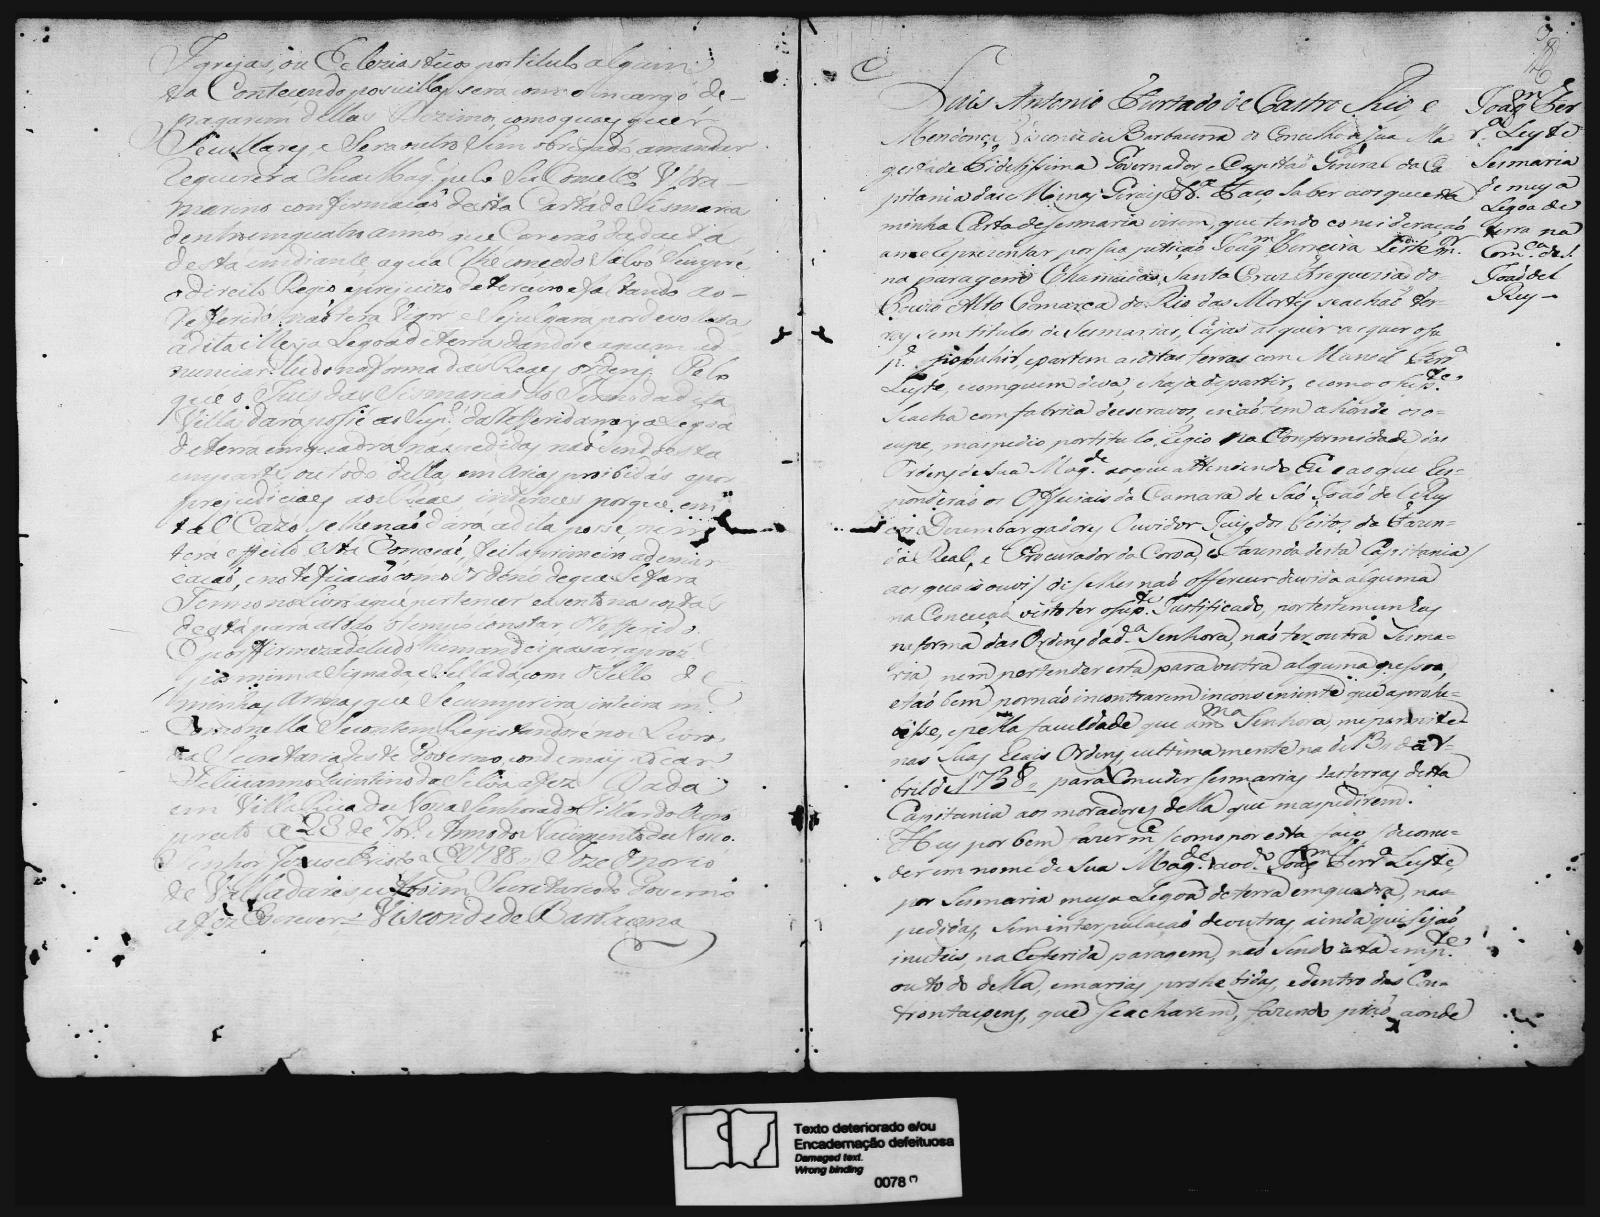 Igrejas, ou Ecleziasticos por titulo algum
e a Contecendo posuillas sera com o emcargo de
pagarem dellas Dizimos, como quaes quer
Seculares e Sera outro Sim obrigado a mandar
Requerer a Sua Mag.e pelo Seu Comelho Ultra
marino confirmaçaõ desta Carta de Sismaria
dentro em quatro annos que Correraõ da data
desta em diante, a qual lhe concedo Salvo Sempre
o direito Regio e prejuizo de terceiro e faltando ao
Refferido naõ tera Vigor e Se julgara por devoluta
a dita meya Legoa de terra dandose a quem a de
nunciar tudo na forma das Reaes ordens. Pelo
que o Juis das Sismarias do Termo da dita
Villa dará posse ao Sup.e da Refferida meya Legoa
de terra em quadra nas pedidas naõ sendo esta
em parte, ou todo della, em Arias prohibidas e por
prejudiciaes aos Reaes interesses porque em
tal Cazo Se lhe naõ dara a dita posse, nem
tera effeito esta Concesaõ, feita primeiro a demar
caçaõ, e notificaçaõ como ordeno de que Se fara
Termo no Livro a que pertencer e asento nas costas
desta para a todo o tempo constar o Refferido.
E por firmeza de tudo lhe mandei pasar a prez.e
por mim asignada e Sellada com o Sello de
minhas Armas que Se cumprira inteiram.e
Como nella Se contem Registandose nos Livros
da Secretaria deste Governo, onde mais tocar
Felicianno Quintino da Silva a fez Dada
em Villa Rica de Nossa Senhora do Pillar do Ouro
preto a 28 de 7br.o Anno do Nacimento de Noso
Senhor Jezus Christo de 1788 // Joze Onorio
de Valladares e Aboim Secretario do Governo
a fez Escrever = Visconde de Barbacena
Luis Antonio Furtado de Castro Rio e
Mendonça Visconde de Barbacena do Concelho de Sua Ma
gestade Fidelissima Governador, e Capitaõ General da Ca
pitania das Minas Geraes &.a Faço Saber aos que esta
minha Carta de Sesmaria virem, que tendo consideraçaõ
a me Reprezentar por Sua petiçaõ Joaq.m Ferreira Leite m.or
na paragem Chamada Santa Cruz Freguezia do
Couro Alto Comarca do Rio das Mortes se achaõ ter
ras sem titulos de Sesmarias, Cujas as quer a quer o su
p.e possuhir, e partem as ditas terras com Manoel Ferr.a
Leyte, e com quem deva, e haja de partir, e como o sup.te
Se acha com fabrica de escravos, e naõ tem a honde os o=
cupe, mas pedio por titulo Regio na Conformidade das
Ordens de Sua Mag.de ao que attendendo Eu e ao que Res=
ponderaõ os Officiais da Camara de Saõ Joaõ del Rey
e os Dezembargadores Ouvidor Juis dos feitos da Fazen=
da Real, e Procurador da Coroa, e fazenda desta Capitania /
aos quais ouvi / de se lhes naõ offerecer duvida alguma
na Conceçaõ visto ter o sup.te Justificado, por testemunhas
na forma das Ordens da d.a Senhora, naõ ter outra Sesma=
ria nem pertender esta para outra alguma pessoa,
e taõ bem por naõ incontrarem inconveniente que a prohi=
bisse, e pella faculdade que a m.ma Senhora, me permite
nas Suas Reais Ordens, e ultimamente na de 13 de A=
bril de 1738, para Conceder sesmarias das terras desta
Capitania aos moradores della que mas pedirem.
Hey por bem fazer m.ce / como por esta faço / de conce=
der em nome de Sua Mag.de ao d.o Joaq.m Ferr.a Leyte,
por Sesmaria meya Legoa de terra em quadra, nas
pedidas, Sem interpulaçaõ de outras ainda que sejaõ
inuteis, na Referida paragem, naõ Sendo esta em p.te
ou todo della, em arias prohebidas, e dentro das Con=
frontaçoens, que se acharem, fazendo piaõ, aonde
Joaq.m Fer
r.a Leyte
Sesmaria
de meya
Legoa de
terra na
Com.ca de S.
Joaõ del
Rey
Texto deteriorado e/ou
Encadernação defeituosa
Damaged text.
Wrong binding
0078